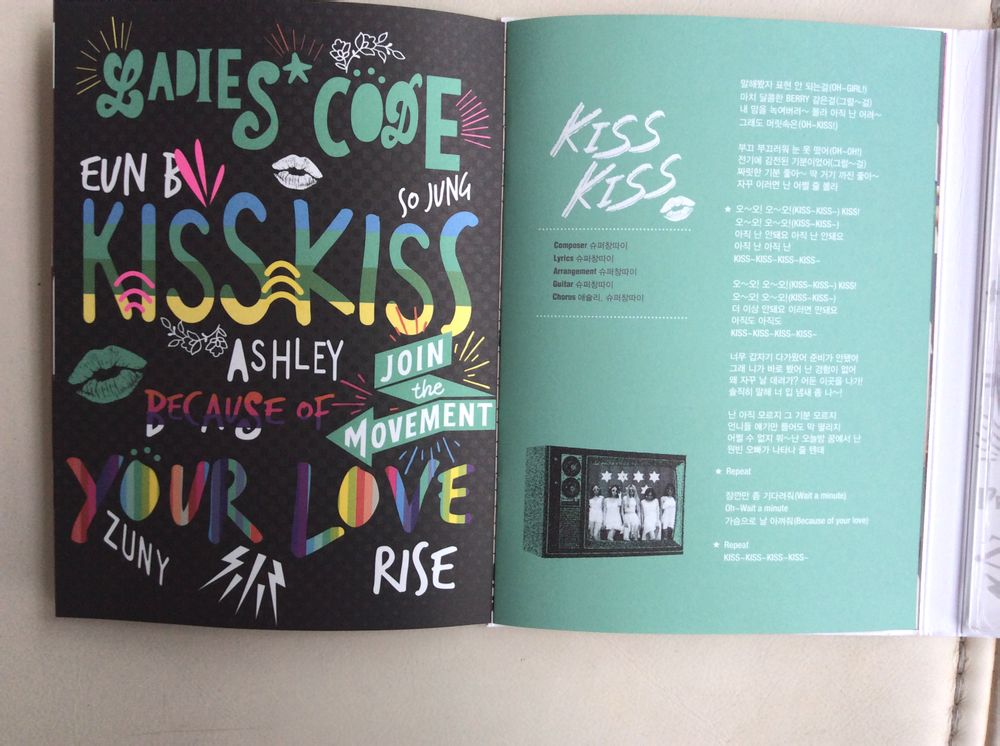 LADIES* CODE
EUN B
SO JUNG
KISS KISS
ASHLEY
JOIN
the
MOVEMENT
BECAUSE OF
YOUR LOVE
ZUNY
RISE
KISS
KISS
Composer 슈퍼창따이
Lyrics 슈퍼창따이
Arrangement 슈퍼창따이
Guitar 슈퍼창따이
Chorus 애슐리, 슈퍼창따이
말해봤자 표현 안 되는걸(OH~GIRL!)
마치 달콤한 BERRY 같은걸(그럴~걸)
내 맘을 녹여버려~ 몰라 아직 난 어려~
그래도 머릿속은(OH~KISS!)
부끄 부끄러워 눈 못 떴어(OH~OH!)
전기에 감전된 기분이었어(그럴~걸)
짜릿한 기분 좋아~ 딱 거기 까진 좋아~
자꾸 이러면 난 어쩔 줄 몰라
★ 오~오! 오~오!(KISS~KISS~) KISS!
오~오! 오~오!(KISS~KISS~)
아직 난 안돼요 아직 난 안돼요
아직 난 아직 난
KISS~KISS~KISS~KISS~
오~오! 오~오!(KISS~KISS~) KISS!
오~오! 오~오!(KISS~KISS~)
더 이상 안돼요 이러면 안돼요
아직도 아직도
KISS~KISS~KISS~KISS~
너무 갑자기 다가왔어 준비가 안됐어
그래 니가 바로 봤어 난 경험이 없어
왜 자꾸 날 데려가? 어둔 이곳을 나가!
솔직히 말해 너 입 냄새 좀 나~!
난 아직 모르지 그 기분 모르지
언니들 얘기만 들어도 막 떨리지
어쩔 수 없지 뭐~난 오늘밤 꿈에서 난
원빈 오빠가 나타나 줄 텐데
★ Repeat
잠깐만 좀 기다려줘(Wait a minute)
Oh~Wait a minute
가슴으로 날 아껴줘(Because of your love)
★ Repeat
KISS~KISS~KISS~KISS~